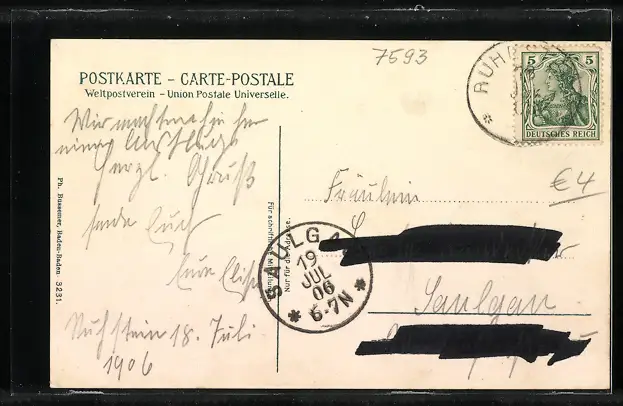 7593
POSTKARTE – CARTE-POSTALE
Weltpostverein – Union Postale Universelle.
RUH
5 5
DEUTSCHES REICH
Wir machten hier
einen Ausflug
herzl. Gruß
sende Euch
Eure Elise
Ruhstein 18. Juli
1906
Ph. Bussemer, Baden-Baden 3231.
Für schriftliche Mitteilungen
Nur für die Adresse.
Fräulein
€4
SAULGA
19
JUL
06
6-7N
Saulgau